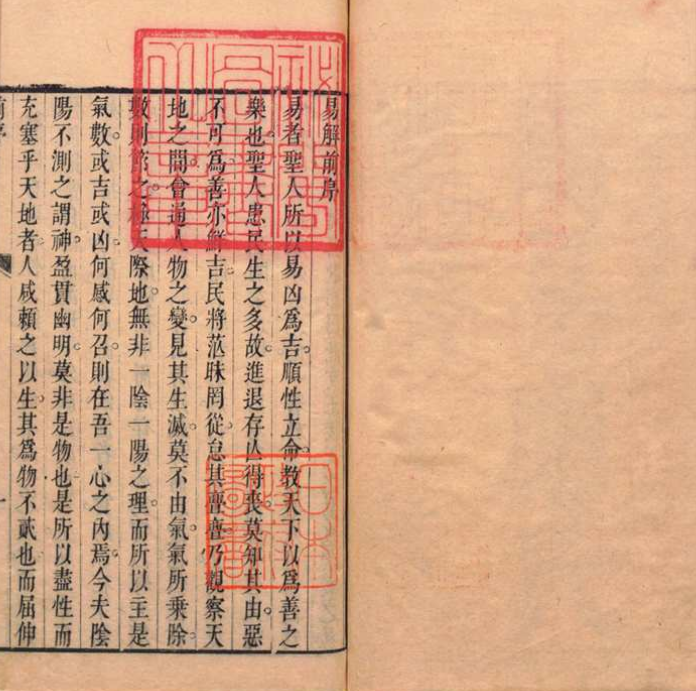 易解前序
易者聖人所以易凶爲吉順性立命教天下以爲善之
樂也聖人患民生之多故進退存亾得喪莫知其由惡
不可爲善亦鮮吉民將茫昧罔從怠其亹亹乃觀察天
地之間會通人物之變見其生滅莫不由氣氣所乘除
數則 之 天際地無非一陰一陽之理而所以主是
氣數或吉或凶何感何召則在吾一心之內焉今夫陰
陽不測之謂神盈貫幽明莫非是物也是所以盡性而
充塞乎天地者人咸賴之以生其爲物不貳也而屈伸
前序
一